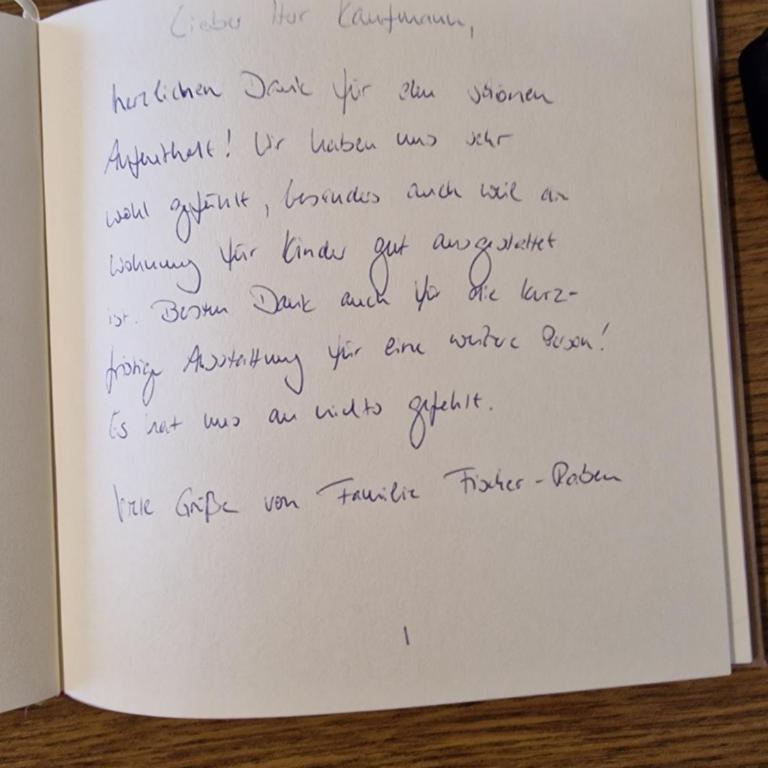 Lieber Herr Kaufmann,
herzlichen Dank für den schönen
Aufenthalt! Wir haben uns sehr
wohl gefühlt, besonders auch weil die
Wohnung für Kinder gut ausgestattet
ist. Besten Dank auch für die kurz-
fristige Ausstattung für eine weitere Person!
Es hat uns an nichts gefehlt.
Viele Grüße von Familie Fischer-Raben
1